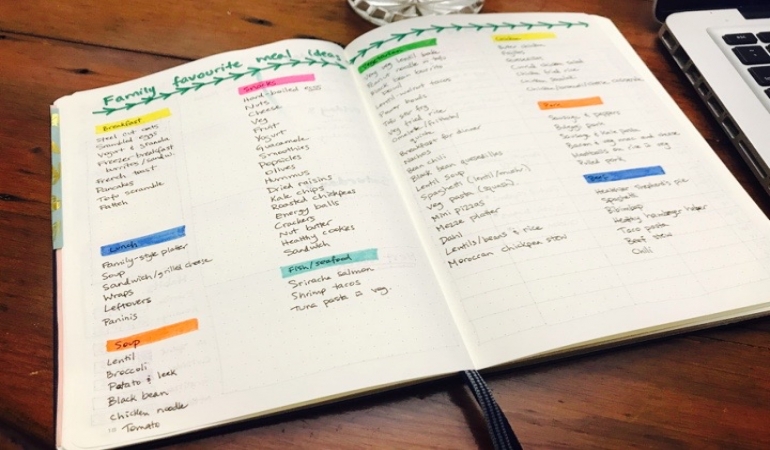 Family favourite meal ideas
Breakfast
Steel cut oats
Scrambled eggs
Yogurt & granola
Freezer breakfast
burritos/sandwi.
French toast
Pancakes
Tofu scramble
Lunch
Family-style platter
Soup
Sandwich/grilled cheese
Wraps
Leftovers
Paninis
Soup
Lentil
Broccoli
Potato & leek
Black bean
Chicken noodle
Tomato
Snacks
Hard-boiled eggs
Nuts
Cheese
Veg
Fruit
Yogurt
Guacamole
Smoothies
Popsicles
Olives
Hummus
Dried raisins
Kale chips
Roasted chickpeas
Energy balls
Crackers
Nut butter
Healthy cookies
Sandwich
Fish/seafood
Sriracha salmon
Shrimp tacos
Tuna pasta & veg.
Vegetarian
Black bean burritos
Lentil-walnut tacos
Power bowls
Veg fried rice
Breakfast for dinner
Nachos
Bean chili
Black bean quesadillas
Lentil soup
Spaghetti (lentil/
Veg pasta (squash)
Mini pizzas
Mezze platter
Dahl
Lentils/beans & rice
Moroccan chickpea stew
Chicken
Butter chicken
Fajitas
Chicken fried rice
Chicken
casserole
Pork
Sausage & peppers
Sausage & kale pasta
Pulled pork
Beef
Shepherd's pie
Spaghetti
Bibimbap
Healthy hamburger helper
Taco pasta
Beef stew
Chili